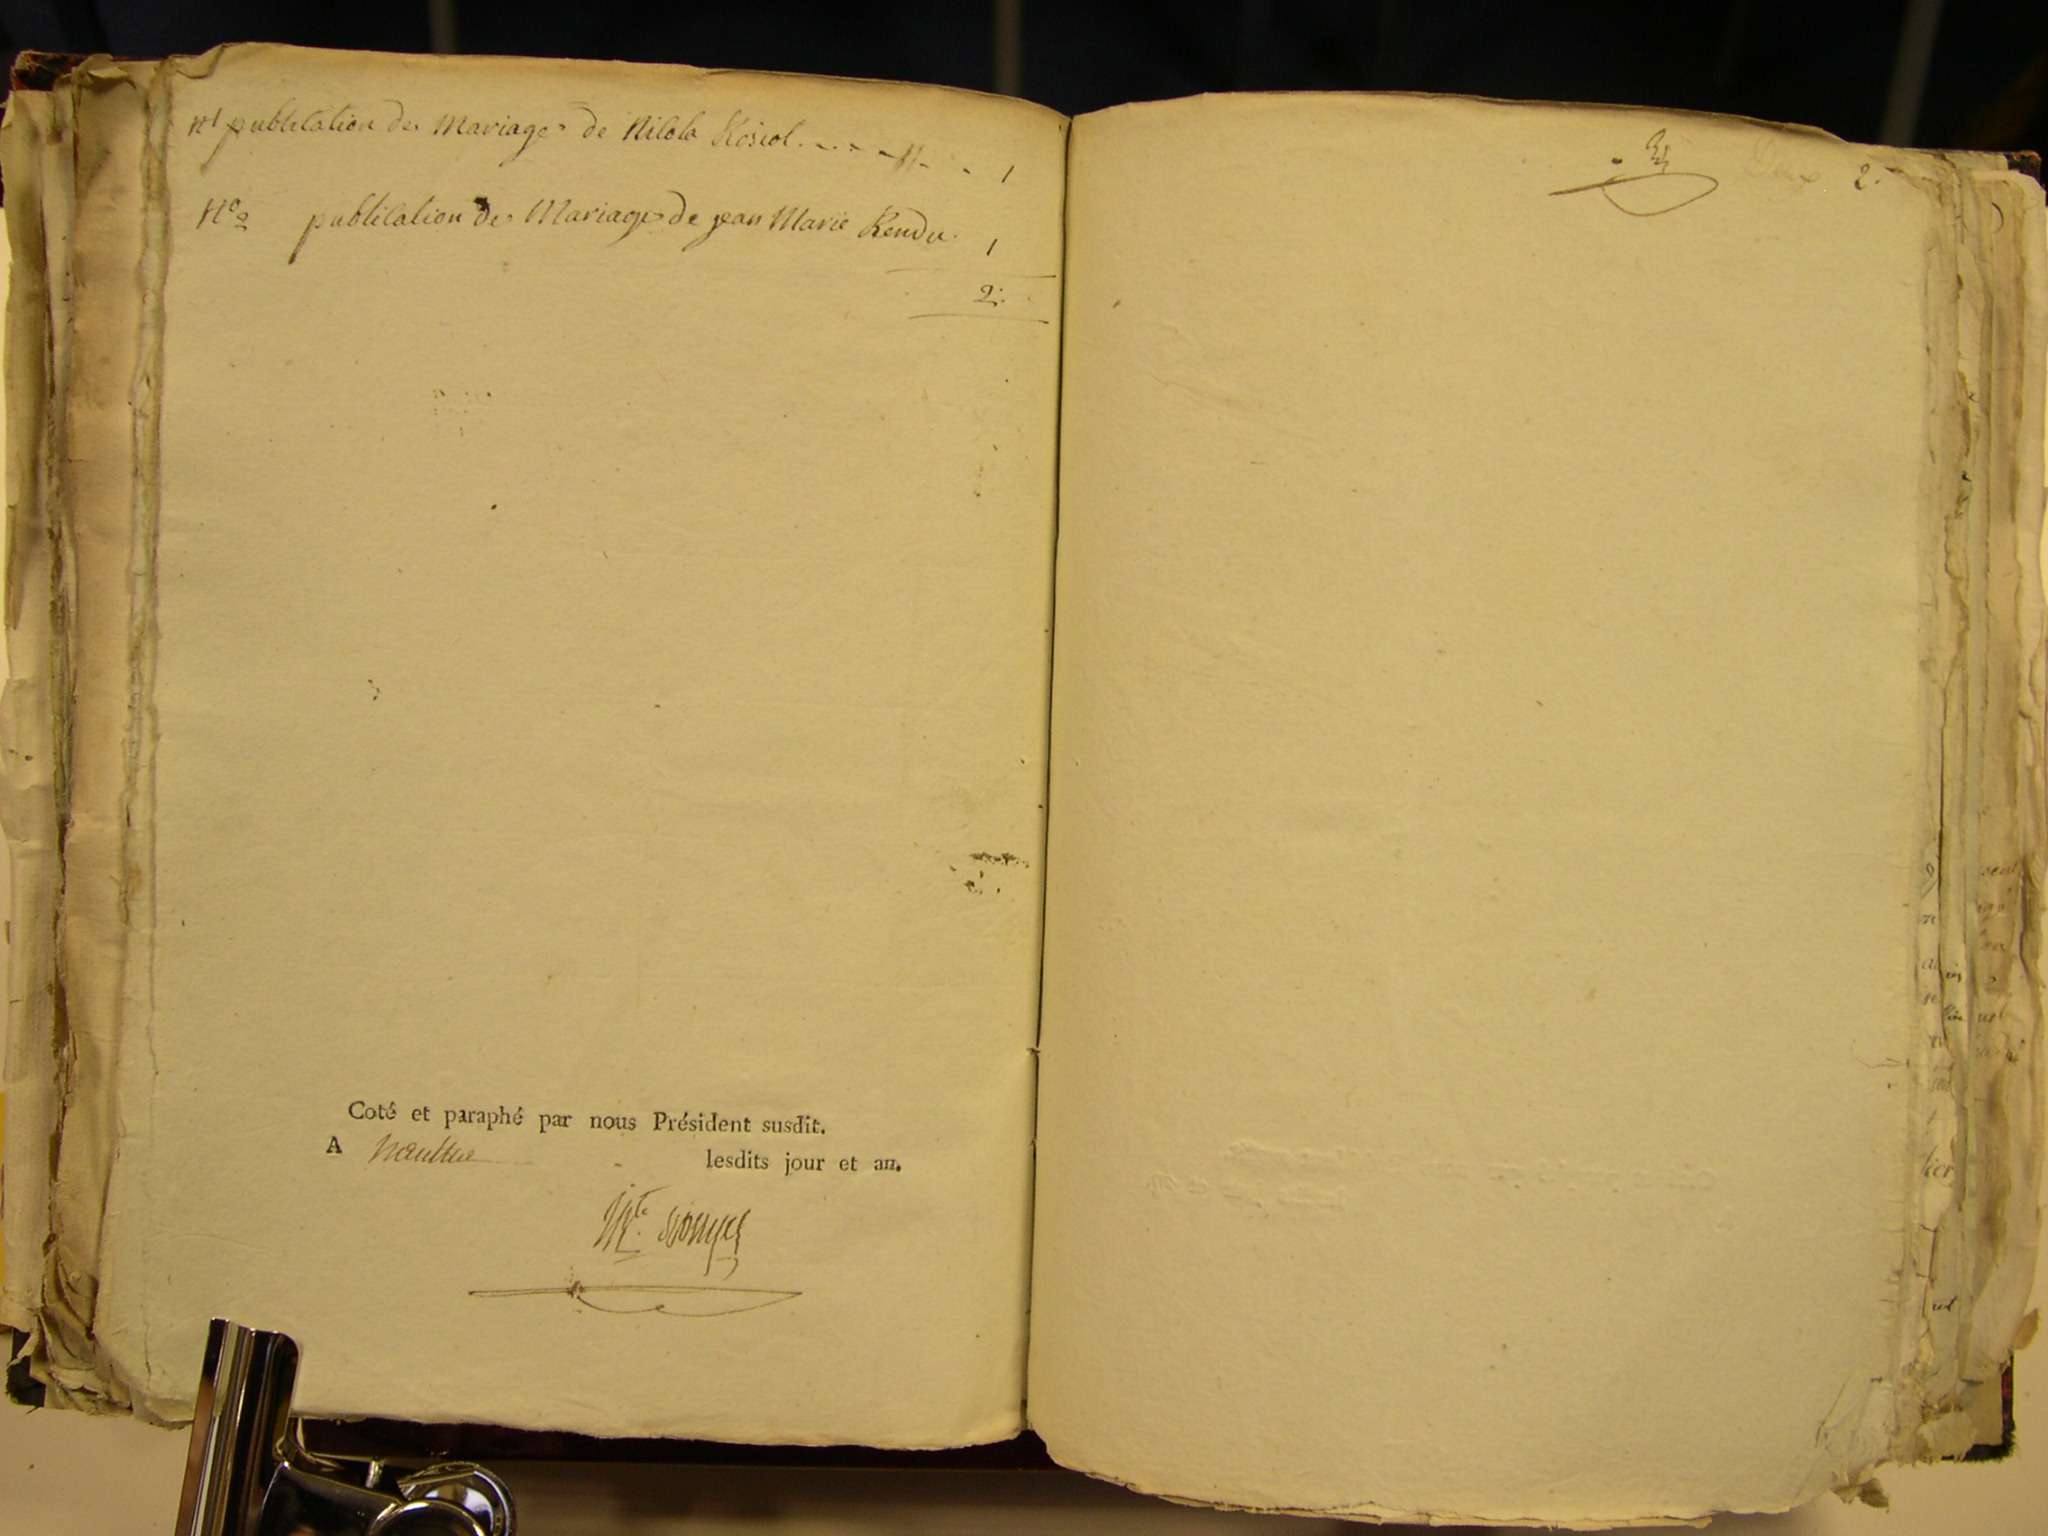 n1 publication de Mariage de Nicola Rosiol. - - - - - 1
No 2 publication de Mariage de jean Marie Rendu. 1
2.
Coté et paraphé par nous Président susdit.
A nantua lesdits jour et an.
Deux 2.